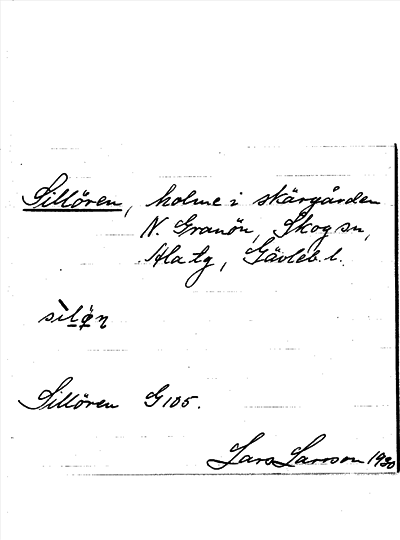 Sillören, holme i skärgården
N. Granön, Skog sn,
Ala tg, Gävleb. l.
Sillören G105.
Lars Larsson 1930